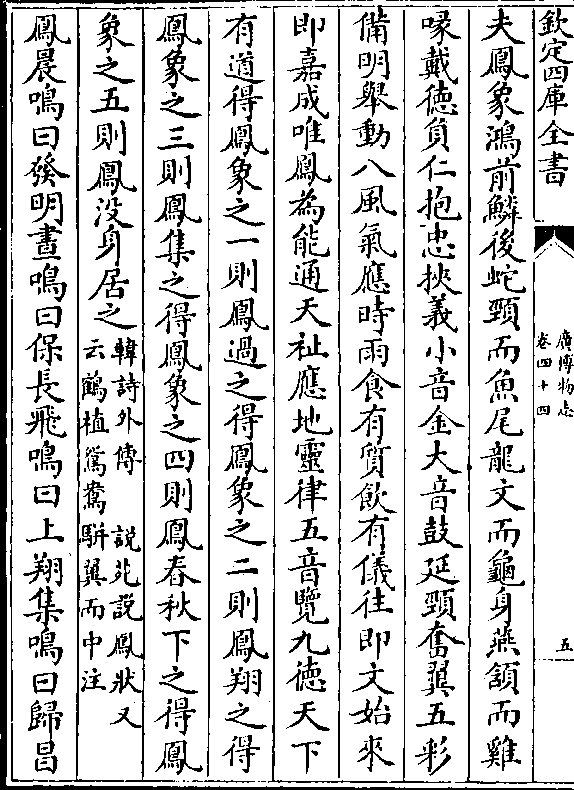 欽定四庫全書
廣博物志
卷四十四
五
夫鳳象鴻前鱗後蛇頸而魚尾龍文而龜身燕頷而雞
喙戴德負仁抱忠挾義小音金大音鼓延頸奮翼五彩
備明舉動八風氣應時雨食有質飲有儀往即文始來
即嘉成唯鳳為能通天祉應地靈律五音覽九德天下
有道得鳳象之一則鳳過之得鳳象之二則鳳翔之得
鳳象之三則鳳集之得鳳象之四則鳳春秋下之得鳳
象之五則鳳没身居之韓詩外傳 說苑說鳳狀又
云鶴植鴛鴦騈翼而中注
鳳晨鳴曰發明晝鳴曰保長飛鳴曰上翔集鳴曰歸昌